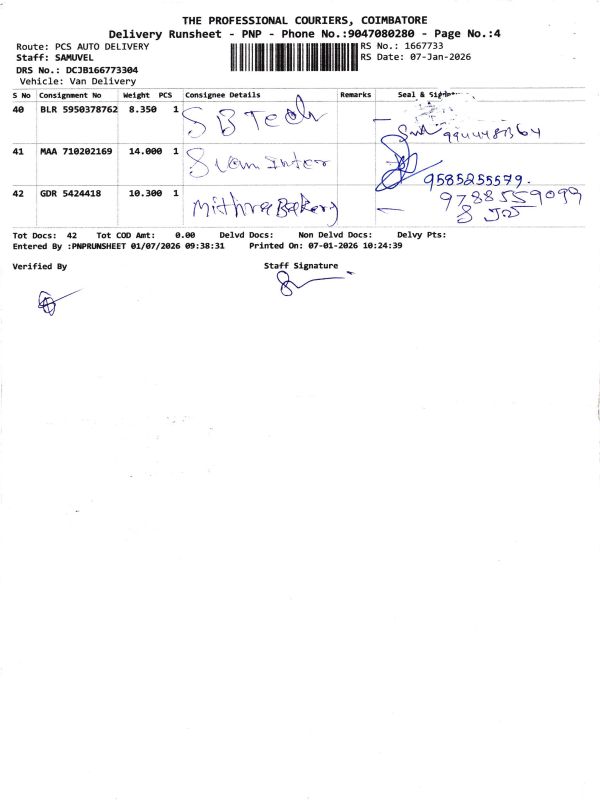 THE PROFESSIONAL COURIERS, COIMBATORE
Delivery Runsheet - PNP - Phone No.:9047080280 - Page No.:4
Route: PCS AUTO DELIVERY RS No.: 1667733
Staff: SAMUVEL RS Date: 07-Jan-2026
DRS No.: DCJB166773304
Vehicle: Van Delivery
S No Consignment No Weight PCS Consignee Details Remarks Seal &
40 BLR 5950378762 8.350 1 SB Tech
41 MAA 710202169 14.000 1 Inter 9585255579.
42 GDR 5424418 10.300 1 Mithra Bakery 9788559099
Tot Docs: 42 Tot COD Amt: 0.00 Delvd Docs: Non Delvd Docs: Delvy Pts:
Entered By :PNPRUNSHEET 01/07/2026 09:38:31 Printed On: 07-01-2026 10:24:39
Verified By Staff Signature